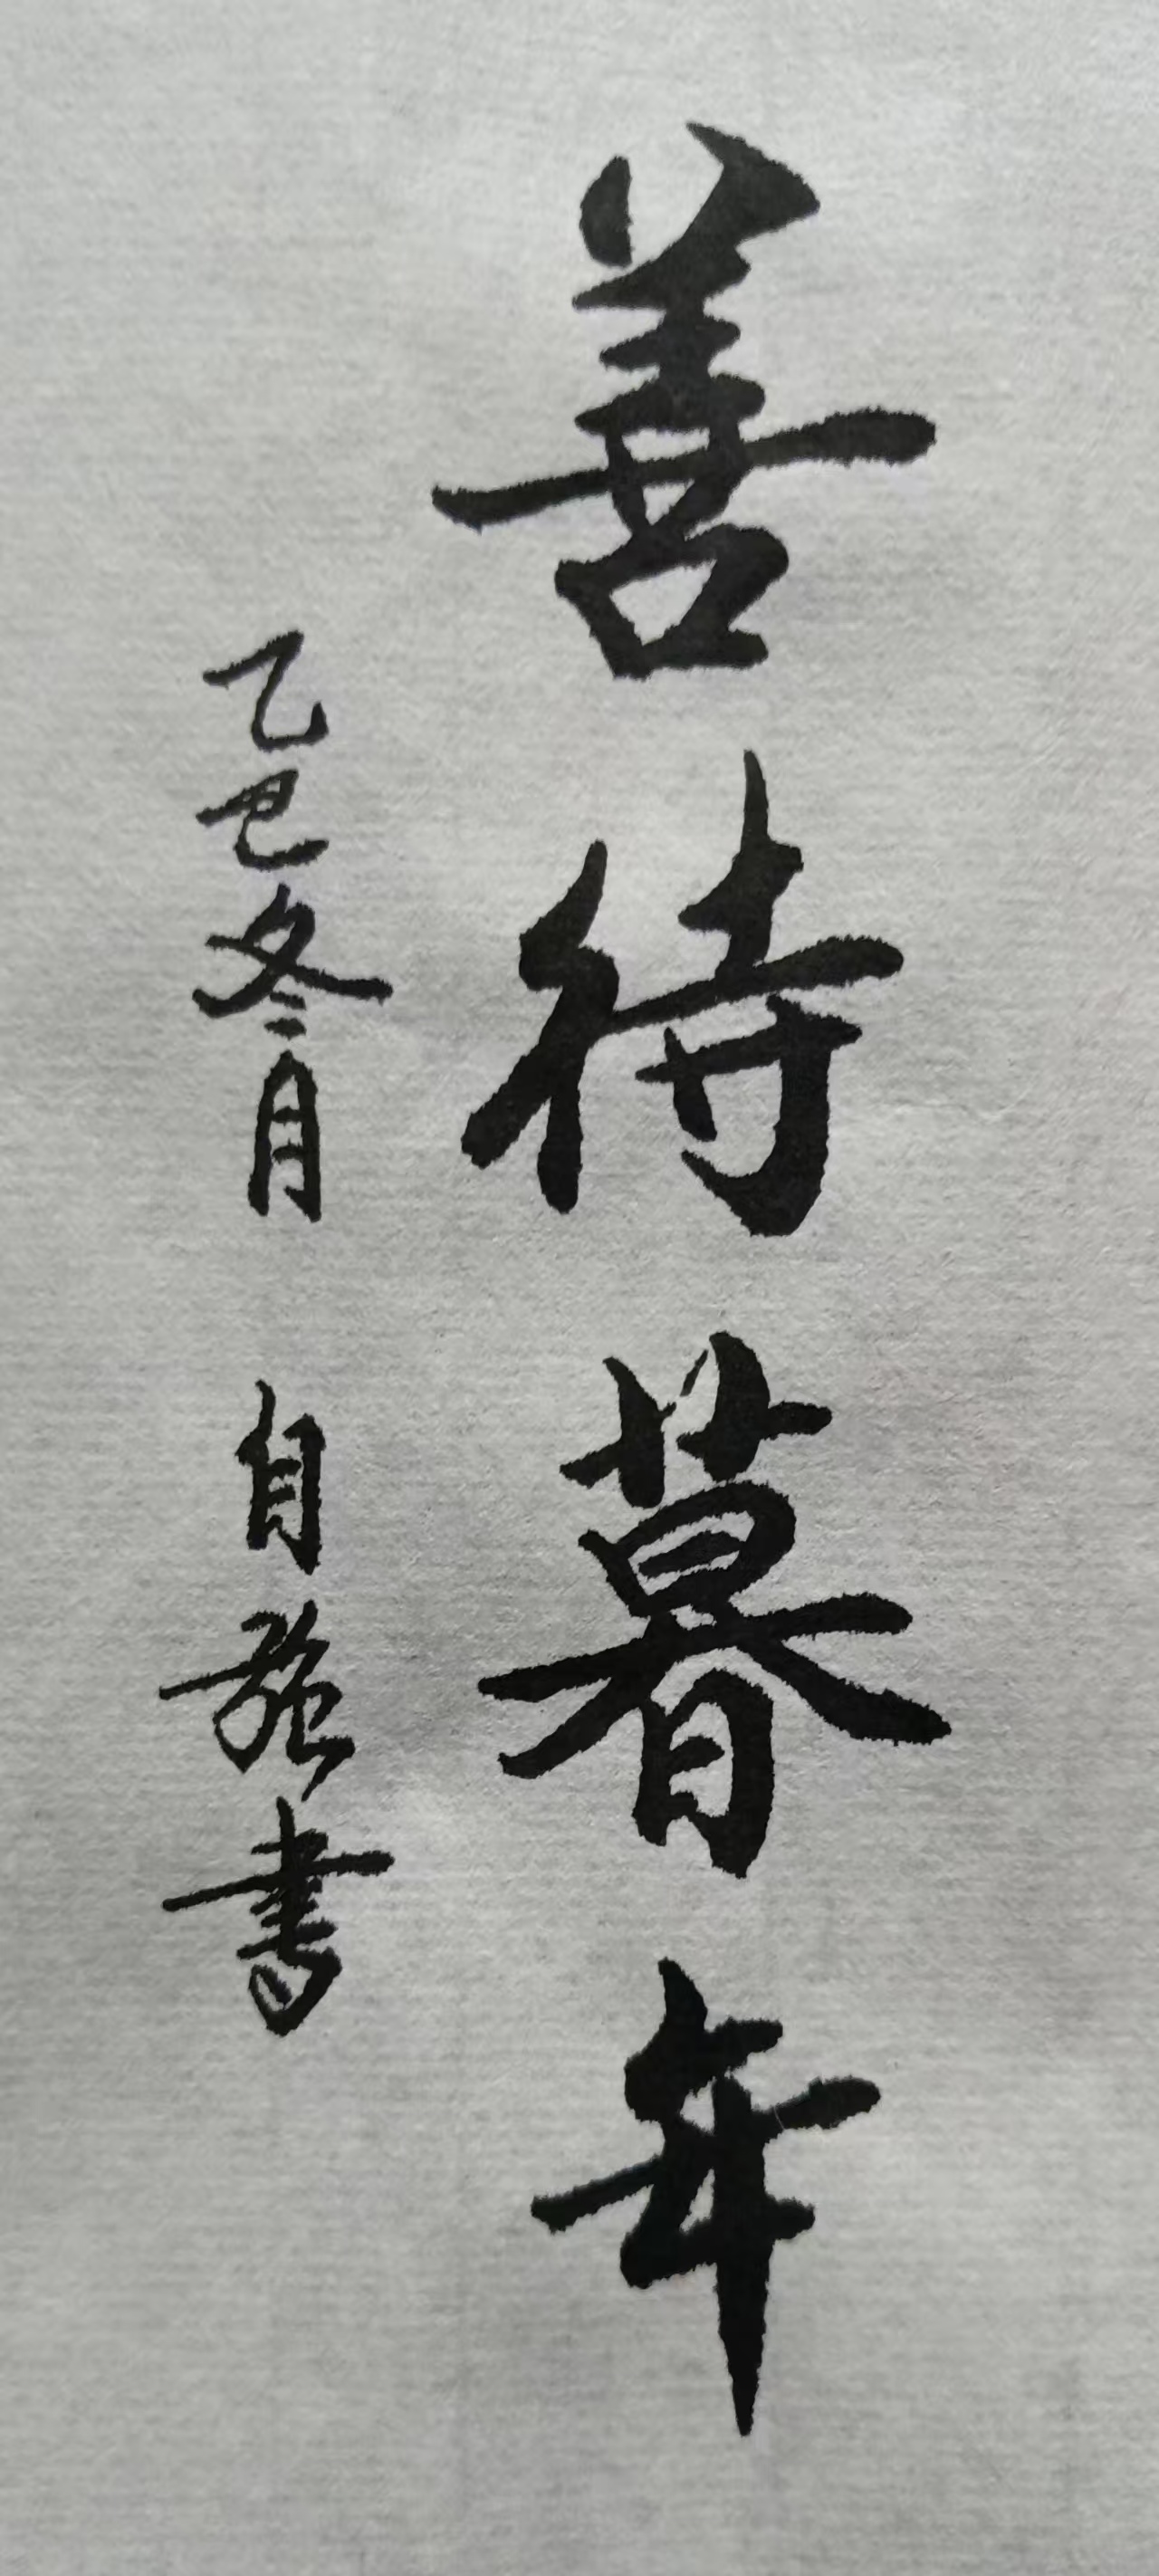 善待暮年
乙巳冬月 自強書